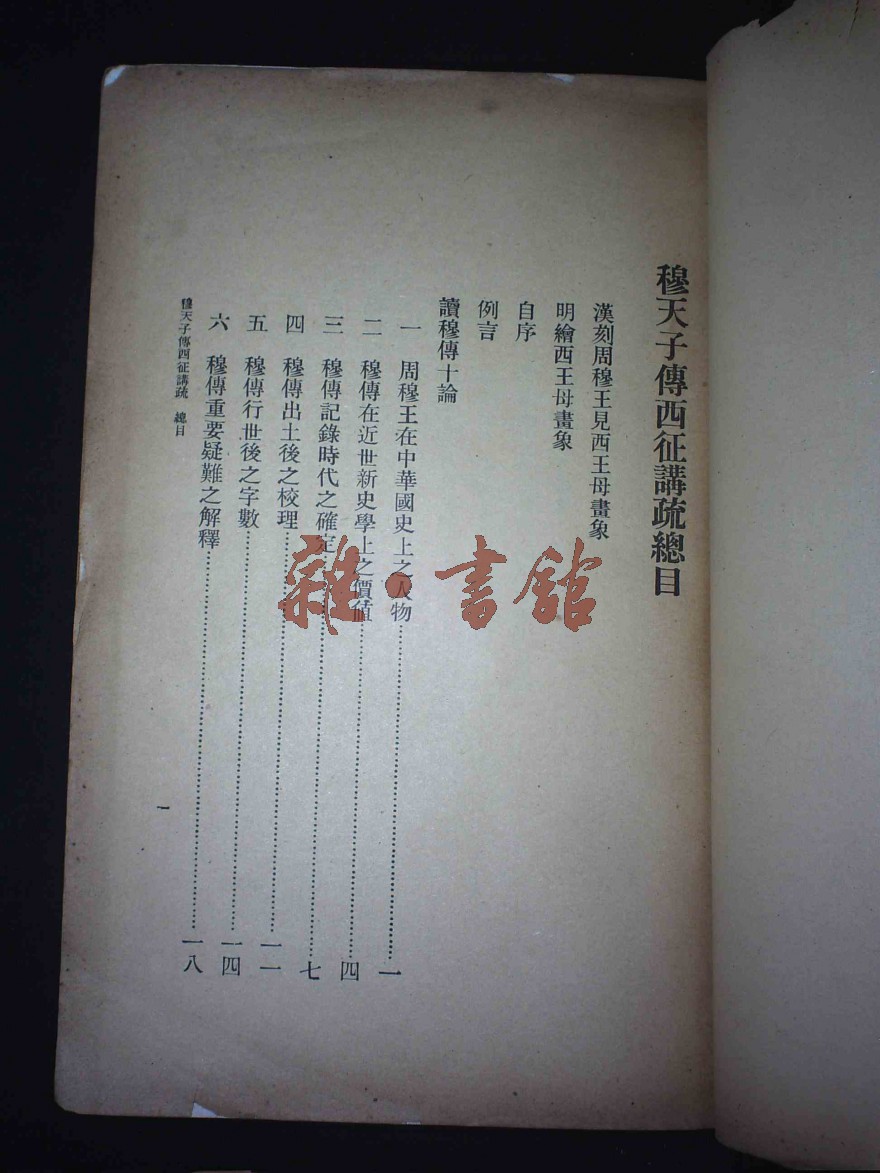 穆天子傳西征講疏總目
漢刻周穆王見西王母畫象
明繪西王母畫象
自序
例言
讀穆傳十論
一　周穆王在中華國史上之人物……一
二　穆傳在近世新史學上之價值……四
三　穆傳記錄時代之確定……七
四　穆傳出土後之校理……一一
五　穆傳行世後之字數……一四
六　穆傳重要疑難之解釋……一八
穆天子傳西征講疏　總目
一
雜·書館